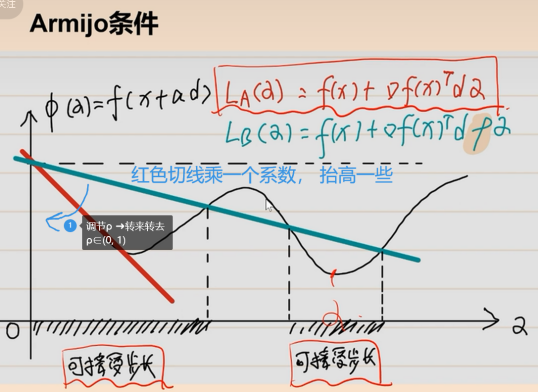 关注
Armijo条件
φ(α)=f(x+αd)
L_A(α) = f(x)+∇f(x)ᵀdα
L_B(α)=f(x)+∇f(x)ᵀdρα
红色切线乘一个系数， 抬高一些
1 调节ρ →转来转去
ρ∈(0, 1)
0
α
α
可接受步长
可接受步长